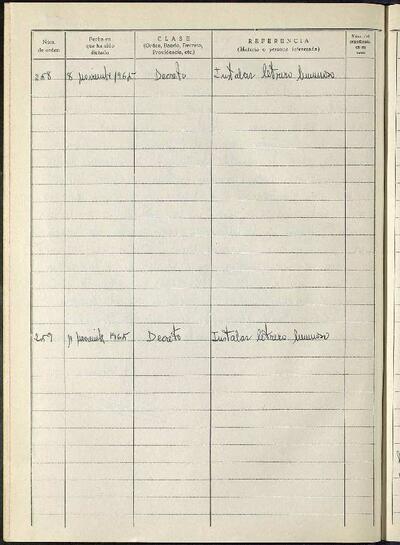 Núm. de orden
Fecha en que ha sido dictado
CLASE
(Orden, Bando, Decreto, Providencia, etc.)
REFERENCIA
(Materia o persona interesada)
258 8 noviembre 1965 Decreto Instalar letrero luminoso
259 noviembre 1965 Decreto Instalar letrero luminoso